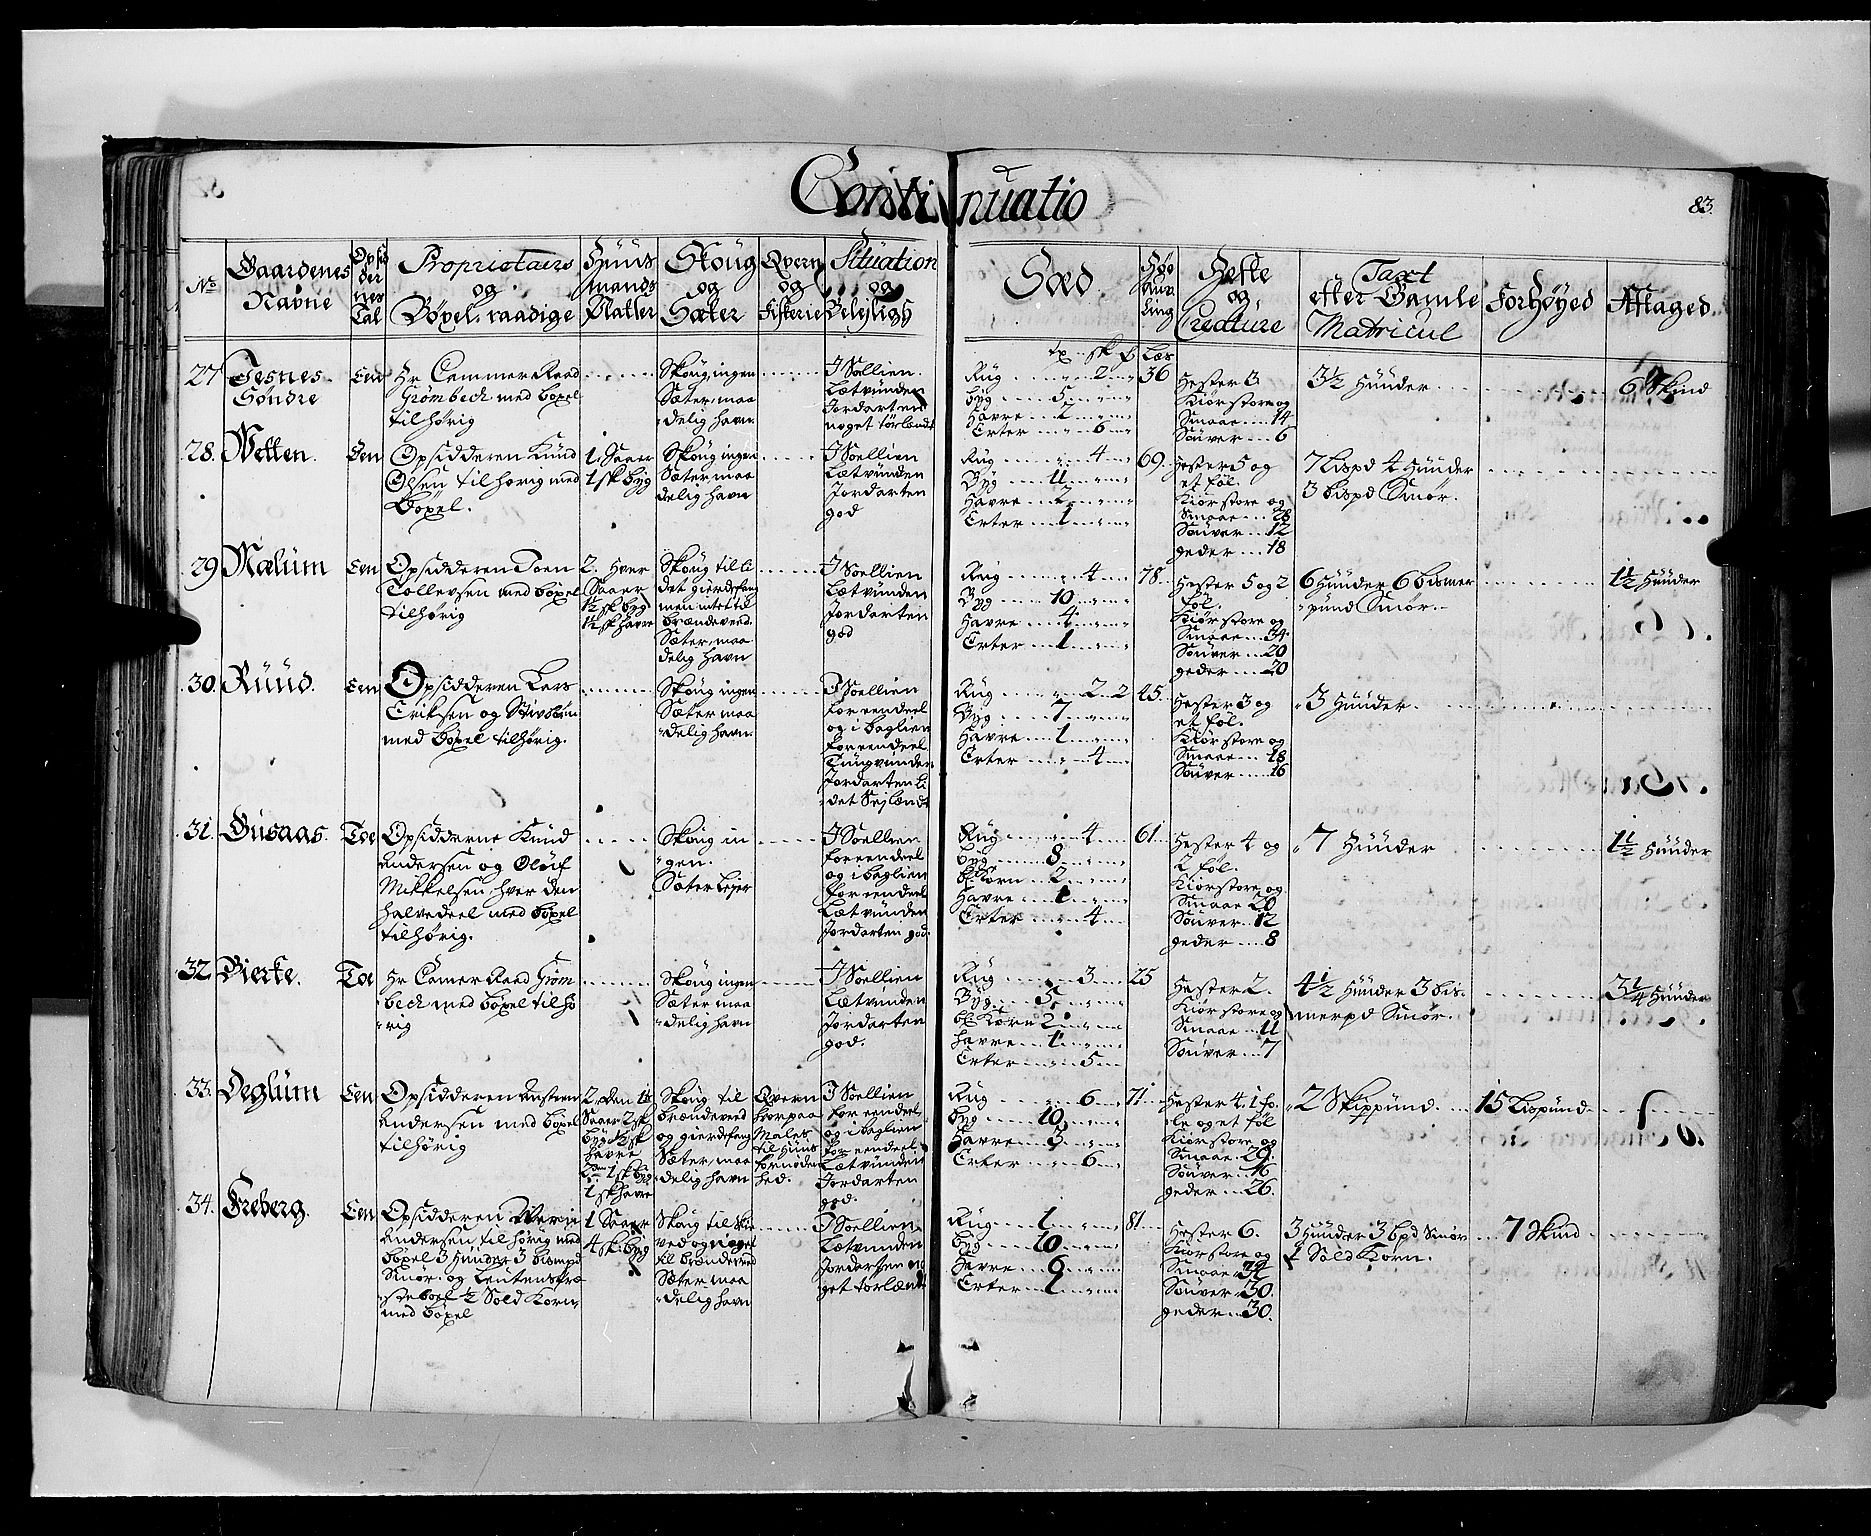 Continuatio
83.
No
Gaardenes Navne
Opsiddernes Tal
Proprietairs og Böxel-raadige
Huusmands Pladtser
Skoug og Sæter
Qvern og Fiskerie
Situation og Belejligh
Sæd.
Høe Auvling
Heste og Creature
Taxt efter Gamle Matricul
Forhøyed
Aftaged.
27
Søndre
Een
Hr Cammer Raad
Grømbech med böxel
tilhørig
Skoug, ingen
Sæter, maa
delig havn.
I Soellien.
Lætvunden
Jordarten
noget tørlændt
tr. sk f
Læs
Rug 2
Byg 5
Havre
Erter 6
36
Hester 3
Kiør store og
Smaae 14
Souver 6
3½ Huuder
6 Skind
28.
Wetten.
Een
Opsidderen Knud
Olsen tilhørig med
Böxel.
1. Saaer
1 sk byg
Skoug ingen
Sæter, maa
delig havn
I Soellien
Lætvunden
Jordarten
god
Rug 4
Byg 11
Havre 2
Erter 1
69.
Hester 5 og
et føl.
Kiør store og
Smaae 28
Souver 12
geder 18
7 Lispd 4 Huuder
3 bispd Smør.
29
Mælum
Een
Opsidderen Joen
Tollevsen med böxel
tilhørig
2. hver
Saaer
1½ sk byg
1½ sk havre
Skoug til li
det gierdefang
men intet til
brændeved.
Sæter, maa
delig havn
I Soellien
Lætvunden
Jordarten
god
Rug 4
Byg 10
Havre 4
Erter 1
78.
Hester 5 og 2
føl.
Kiør store og
Smaae 34
Souver 20
geder 20
6 Huuder 6 bismer
pund Smør.
1½ Huuder
30.
Ruud.
Een
Opsidderen Lars
Eriksen og Stivbørn
med böxel tilhørig.
Skoug ingen
Sæter maa
delig havn.
I Soellien
for eendeel
og i baglien
for eendeel
Tungvunden
Jordarten li
det Sejlændt
Rug 2 2
Byg 7
Havre 1
Erter 4
45.
Hester 3 og
et føl.
Kiør store og
Smaae 18
Souver 16
3 Huuder.
31.
Gusaas.
Toe
Opsidderne Knud
Andersen og Oluf
Mikkelsen, hver den
halvedeel med böxel
tilhørig.
Skoug in
gen.
Sæter lejer
I Soellien
for eendeel
og i baglien
for eendeel
Lætvunden
Jordarten god.
Rug 4
byg 8
bl Korn 2
Havre 1
Erter 4
61
Hester 4 og
2 føl.
Kiør store og
Smaae 20
Souver 12
geder 8
7 Huuder
1½ Huuder
32
Bierke.
Toe
Hr Camer Raad Grøm
bech med böxel tilhø
rig
Skoug ingen
Sæter maa
delig havn
I Soellien
Lætvunden
Jordarten
god.
Rug 3
Byg 5
bl Korn 2
havre 1
Erter 5
25
Hester 2.
Kiør store og
Smaae 11
Souver 7
4½ Huuder 3 bis
merpd Smør.
3¼ Huuder
33.
Deglum
Een
Opsidderen Ansten
Andersen med böxel
tilhørig
2. den 1te
Saaer 2 sk
byg 1½ sk
havre
1 sk byg
1 sk havre
Skoug til
brændeved
og gierdefang
Sæter, maa
delig havn
Qvern
hvorpaa
Males
til huus
fornøden
hed.
I Soellien
for eendeel
og i baglien
for eendeel
Lætvunden
Jordarten
god.
Rug 6
byg 10
Havre 3
Erter 6
71
Hester 4. 1 fo
le og et føl
Kiør store og
Smaae 29.
Souver 16
geder 26.
2 Skippund
15 Lispund
34.
Freberg.
Een
Opsidderen
Andersen tilhørig med
böxel 3 Huuder 3 bismpd
Smør. og
½ Sold Korn
med böxel
1 Saaer
4 sk. byg
Skoug til
ved og noget
til brændeved
Sæter maa
delig havn
I Soellien.
Lætvunden
Jordarten no
get tørlændt
Rug 1
byg 10
Havre 6
Erter 1
81
Hester 6.
Kiør store og
Smaae
Souver 30.
geder 30.
3 Huuder 3 bpd Smør
1 Sold Korn.
7 Skind